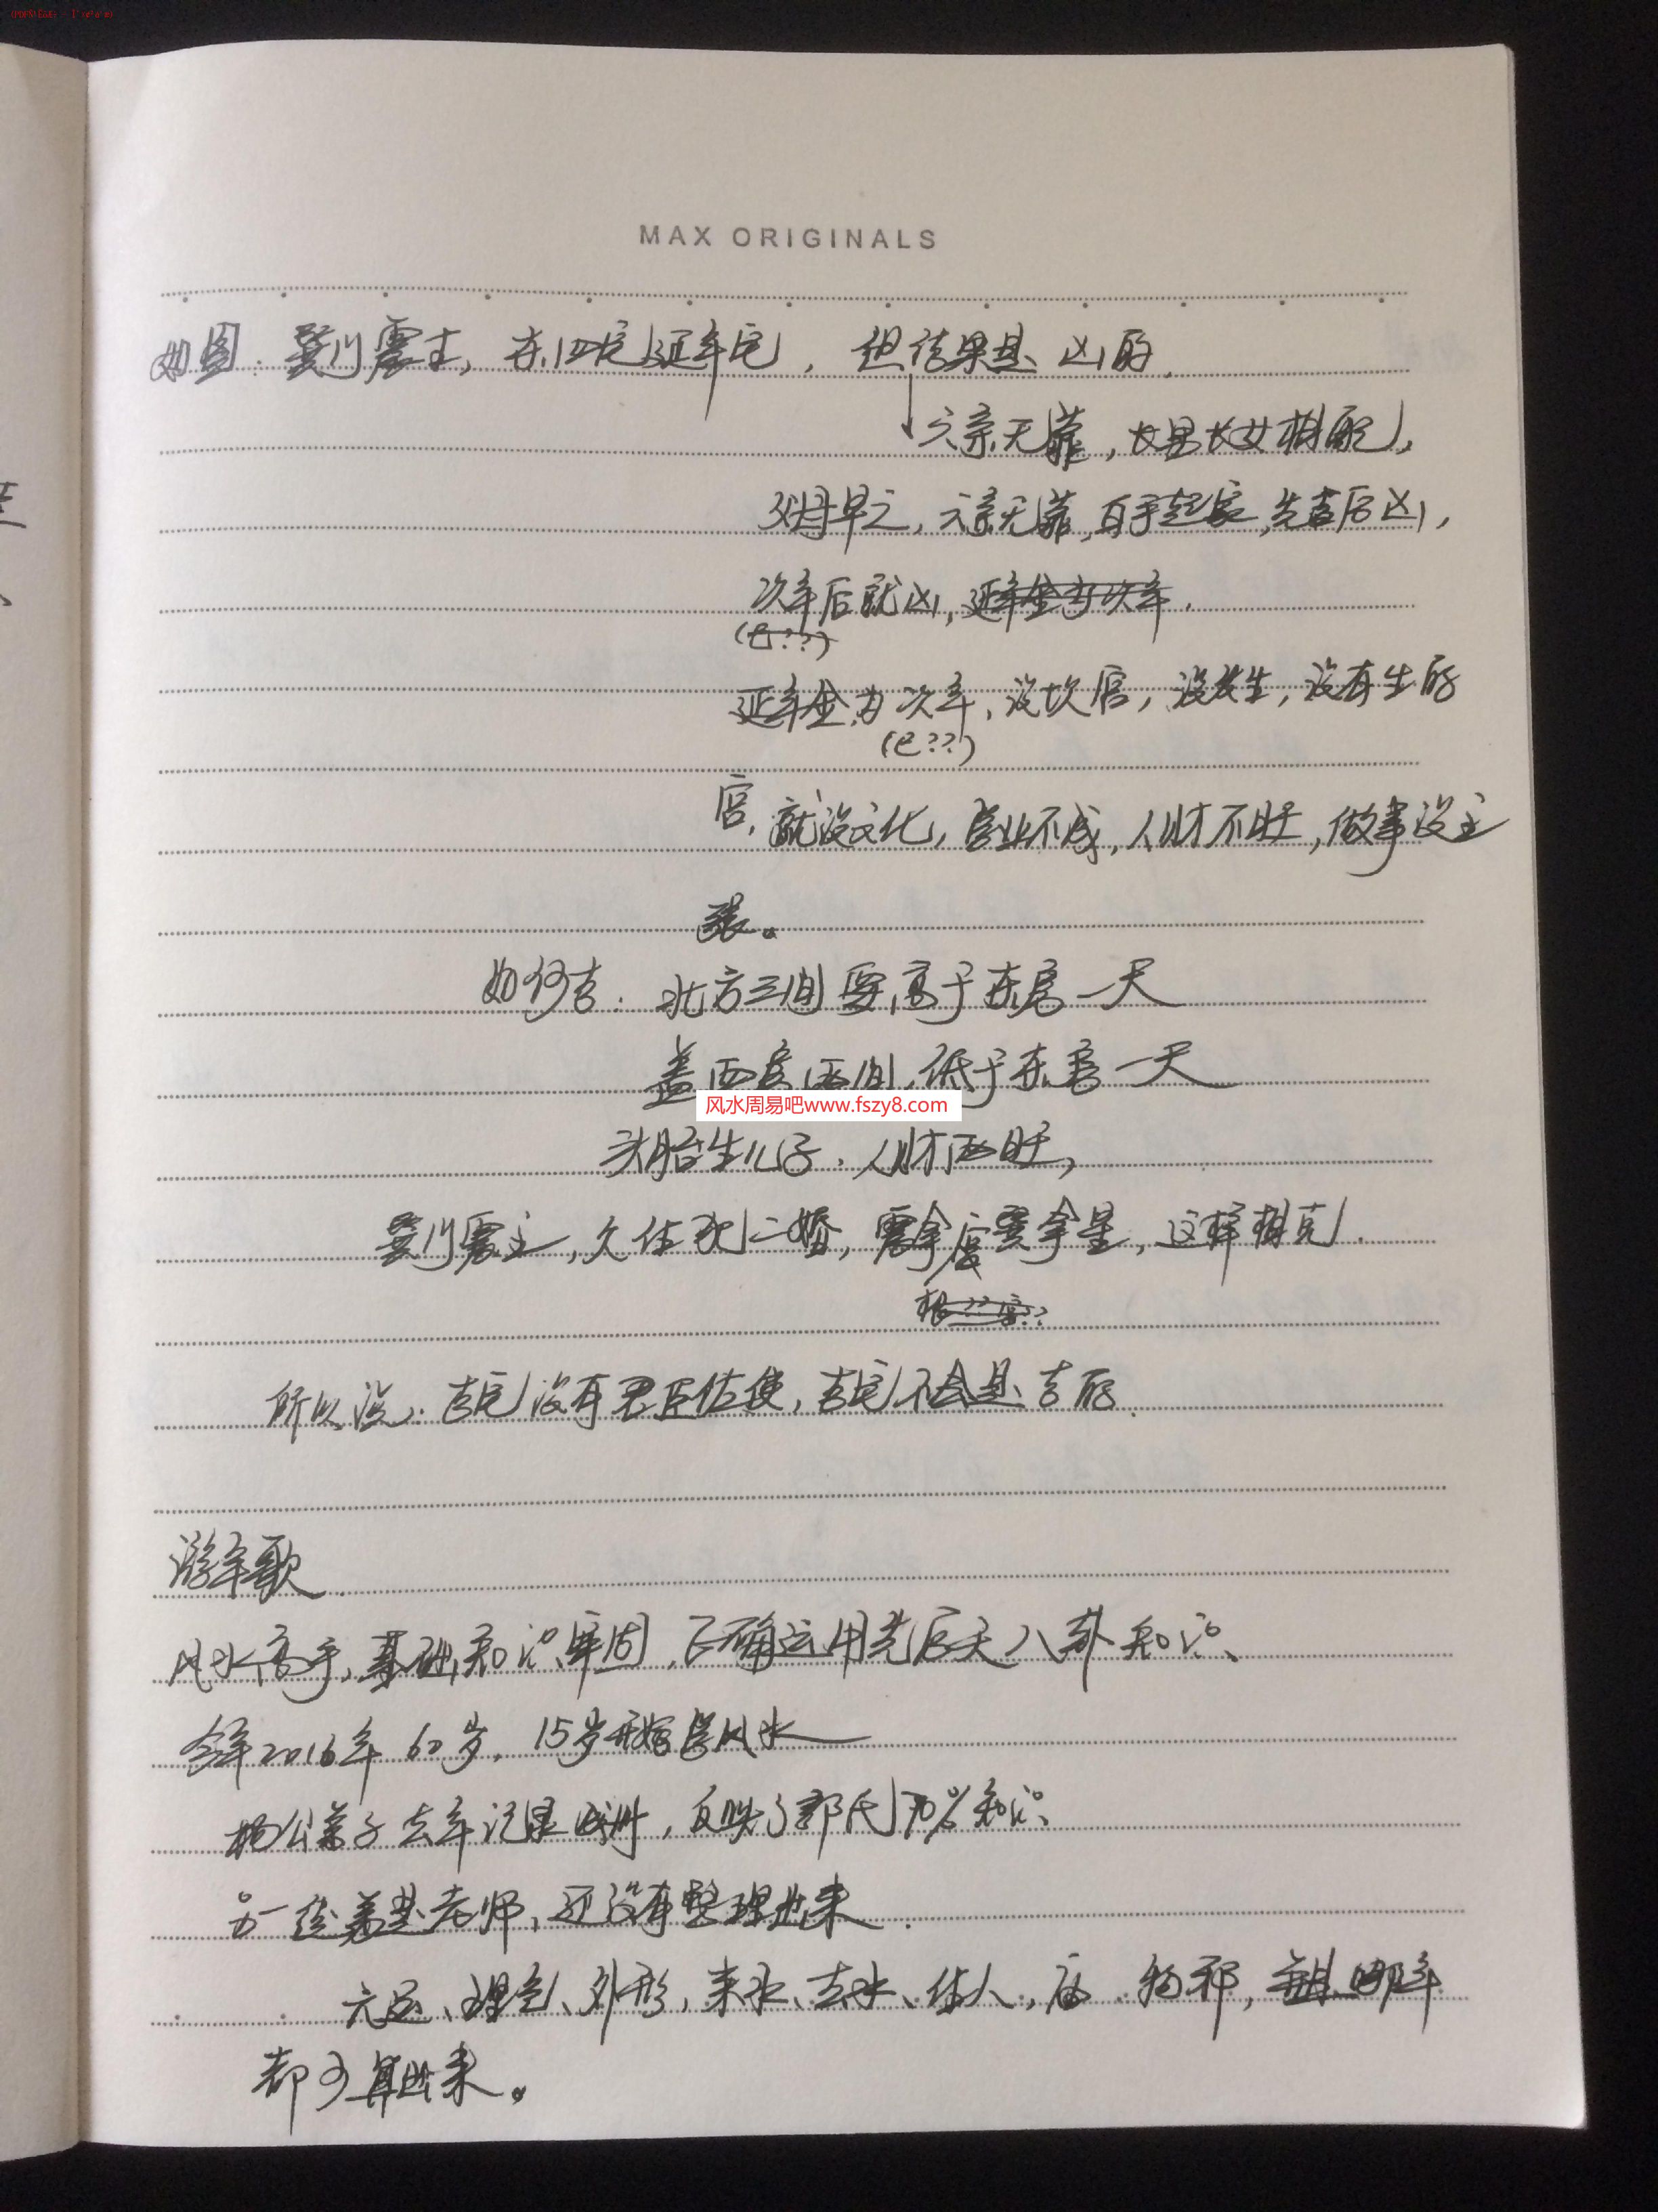 MAX ORIGINALS
如图:巽门震主,东四宅延年宅,但结果是凶的.
六亲无靠,长男长女相配,
父母早亡,六亲无靠,白手起家,先吉后凶,
次年后就凶,延年金为次年.
(e??)
延年金为次年,没坎宫,没发生,没有生的
(e??)
宫,就没文化,官业不成,人财不旺,做事没主
张。
如何吉:北方三间要高于东房一天
盖西房两间,低于东房一天
风水周易吧www.fszy8.com
头胎生儿子,人财两旺,
巽门震主,久住犯二婚,震拿度巽拿星,这样相克.
所以说:吉宅没有君臣佐使,吉宅不会是吉的.
游年歌
风水高手,基础知识牢固,正确运用先后天八卦知识、
今年2016年60岁,15岁开始学风水
杨公弟子去年记录,反映了郭氏70%知识、
另一徒弟老师,还没有整理出来.
六,理气、外形,来水、去水、住人,庙、物,哪年
都可算出来。